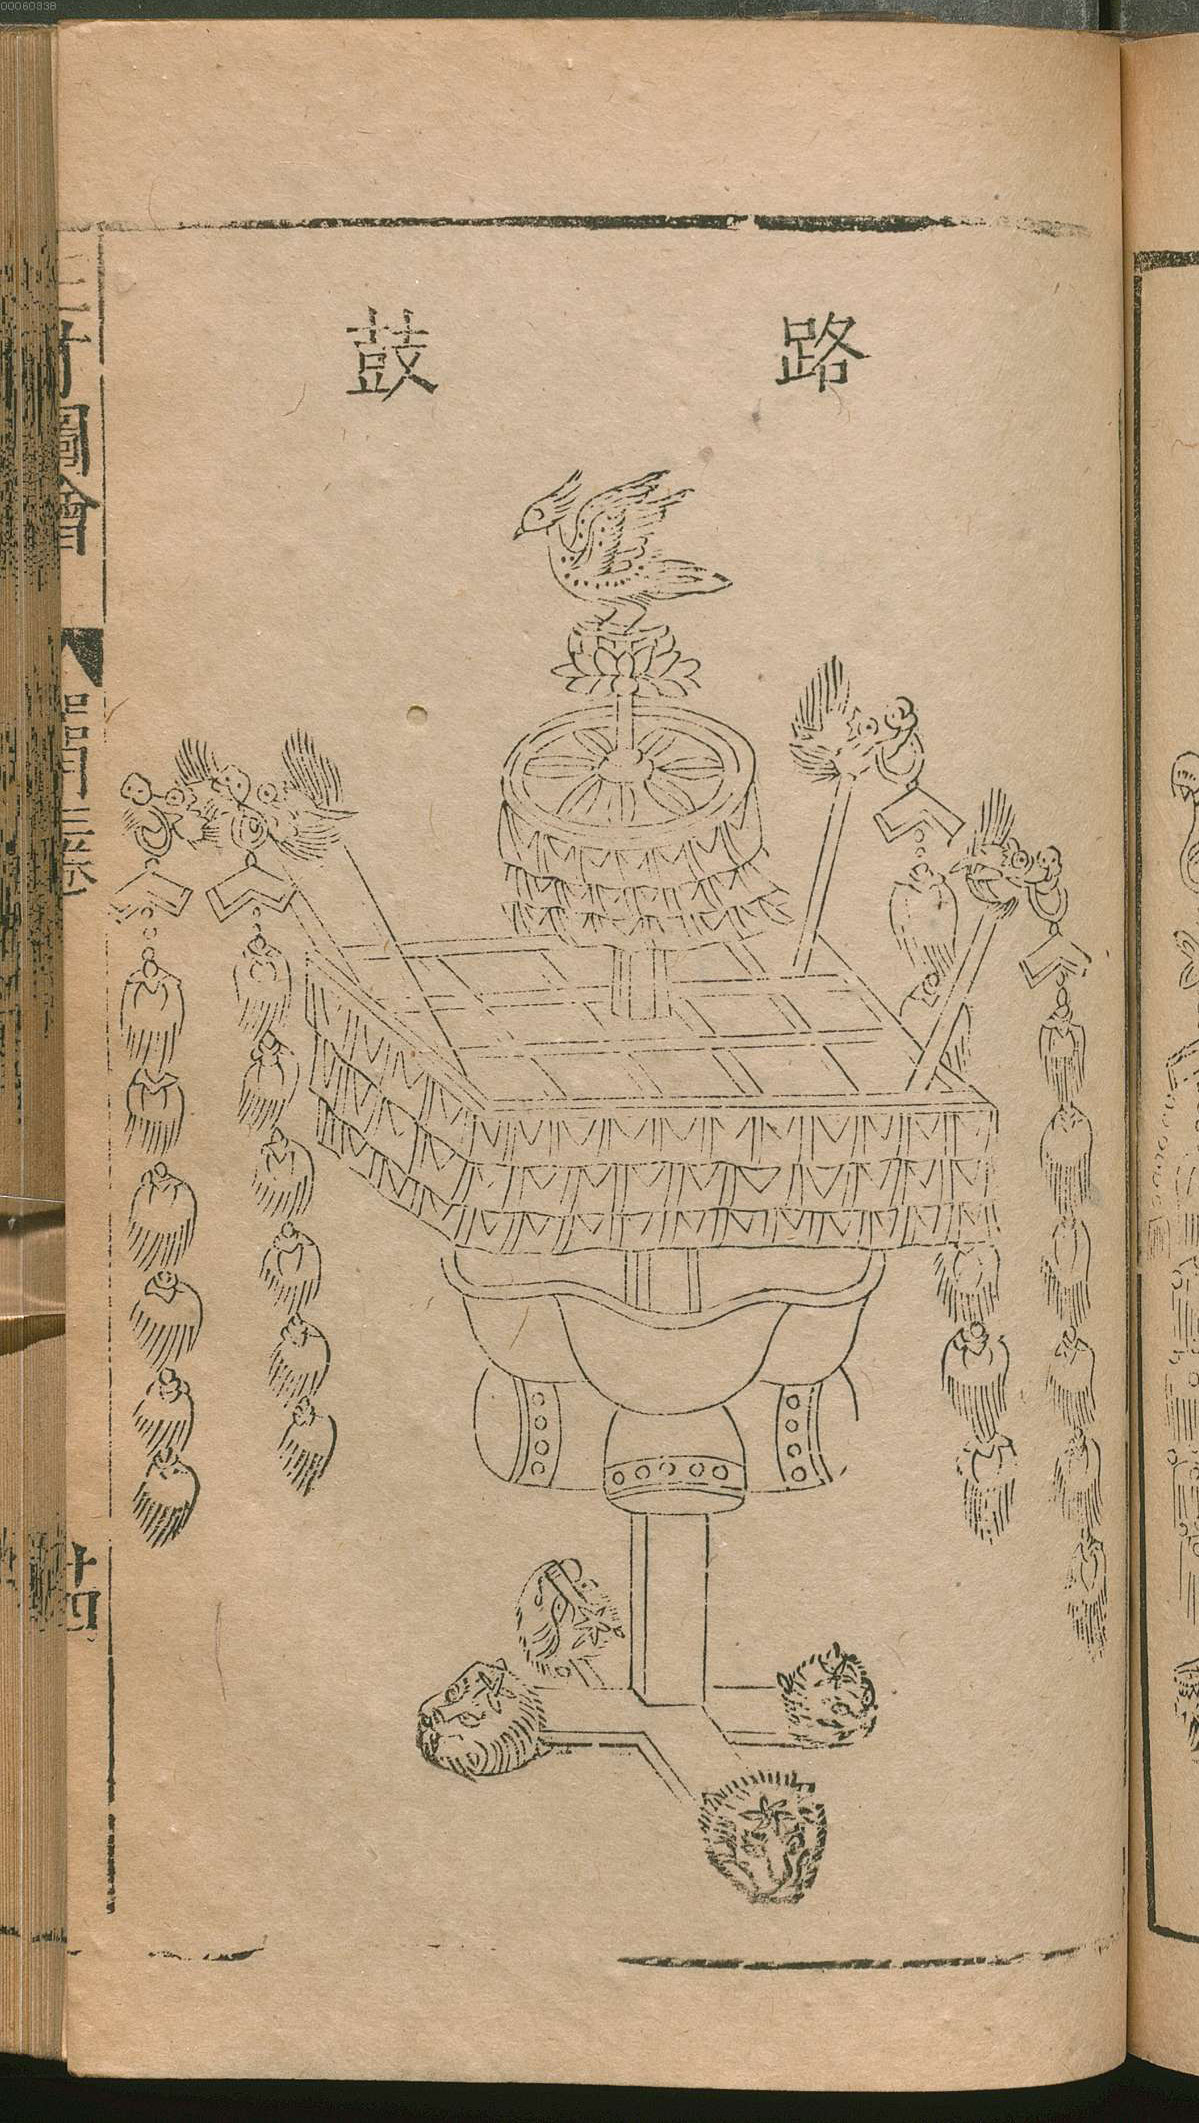 路鼓
三才圖會
器用三卷
十四
00060338